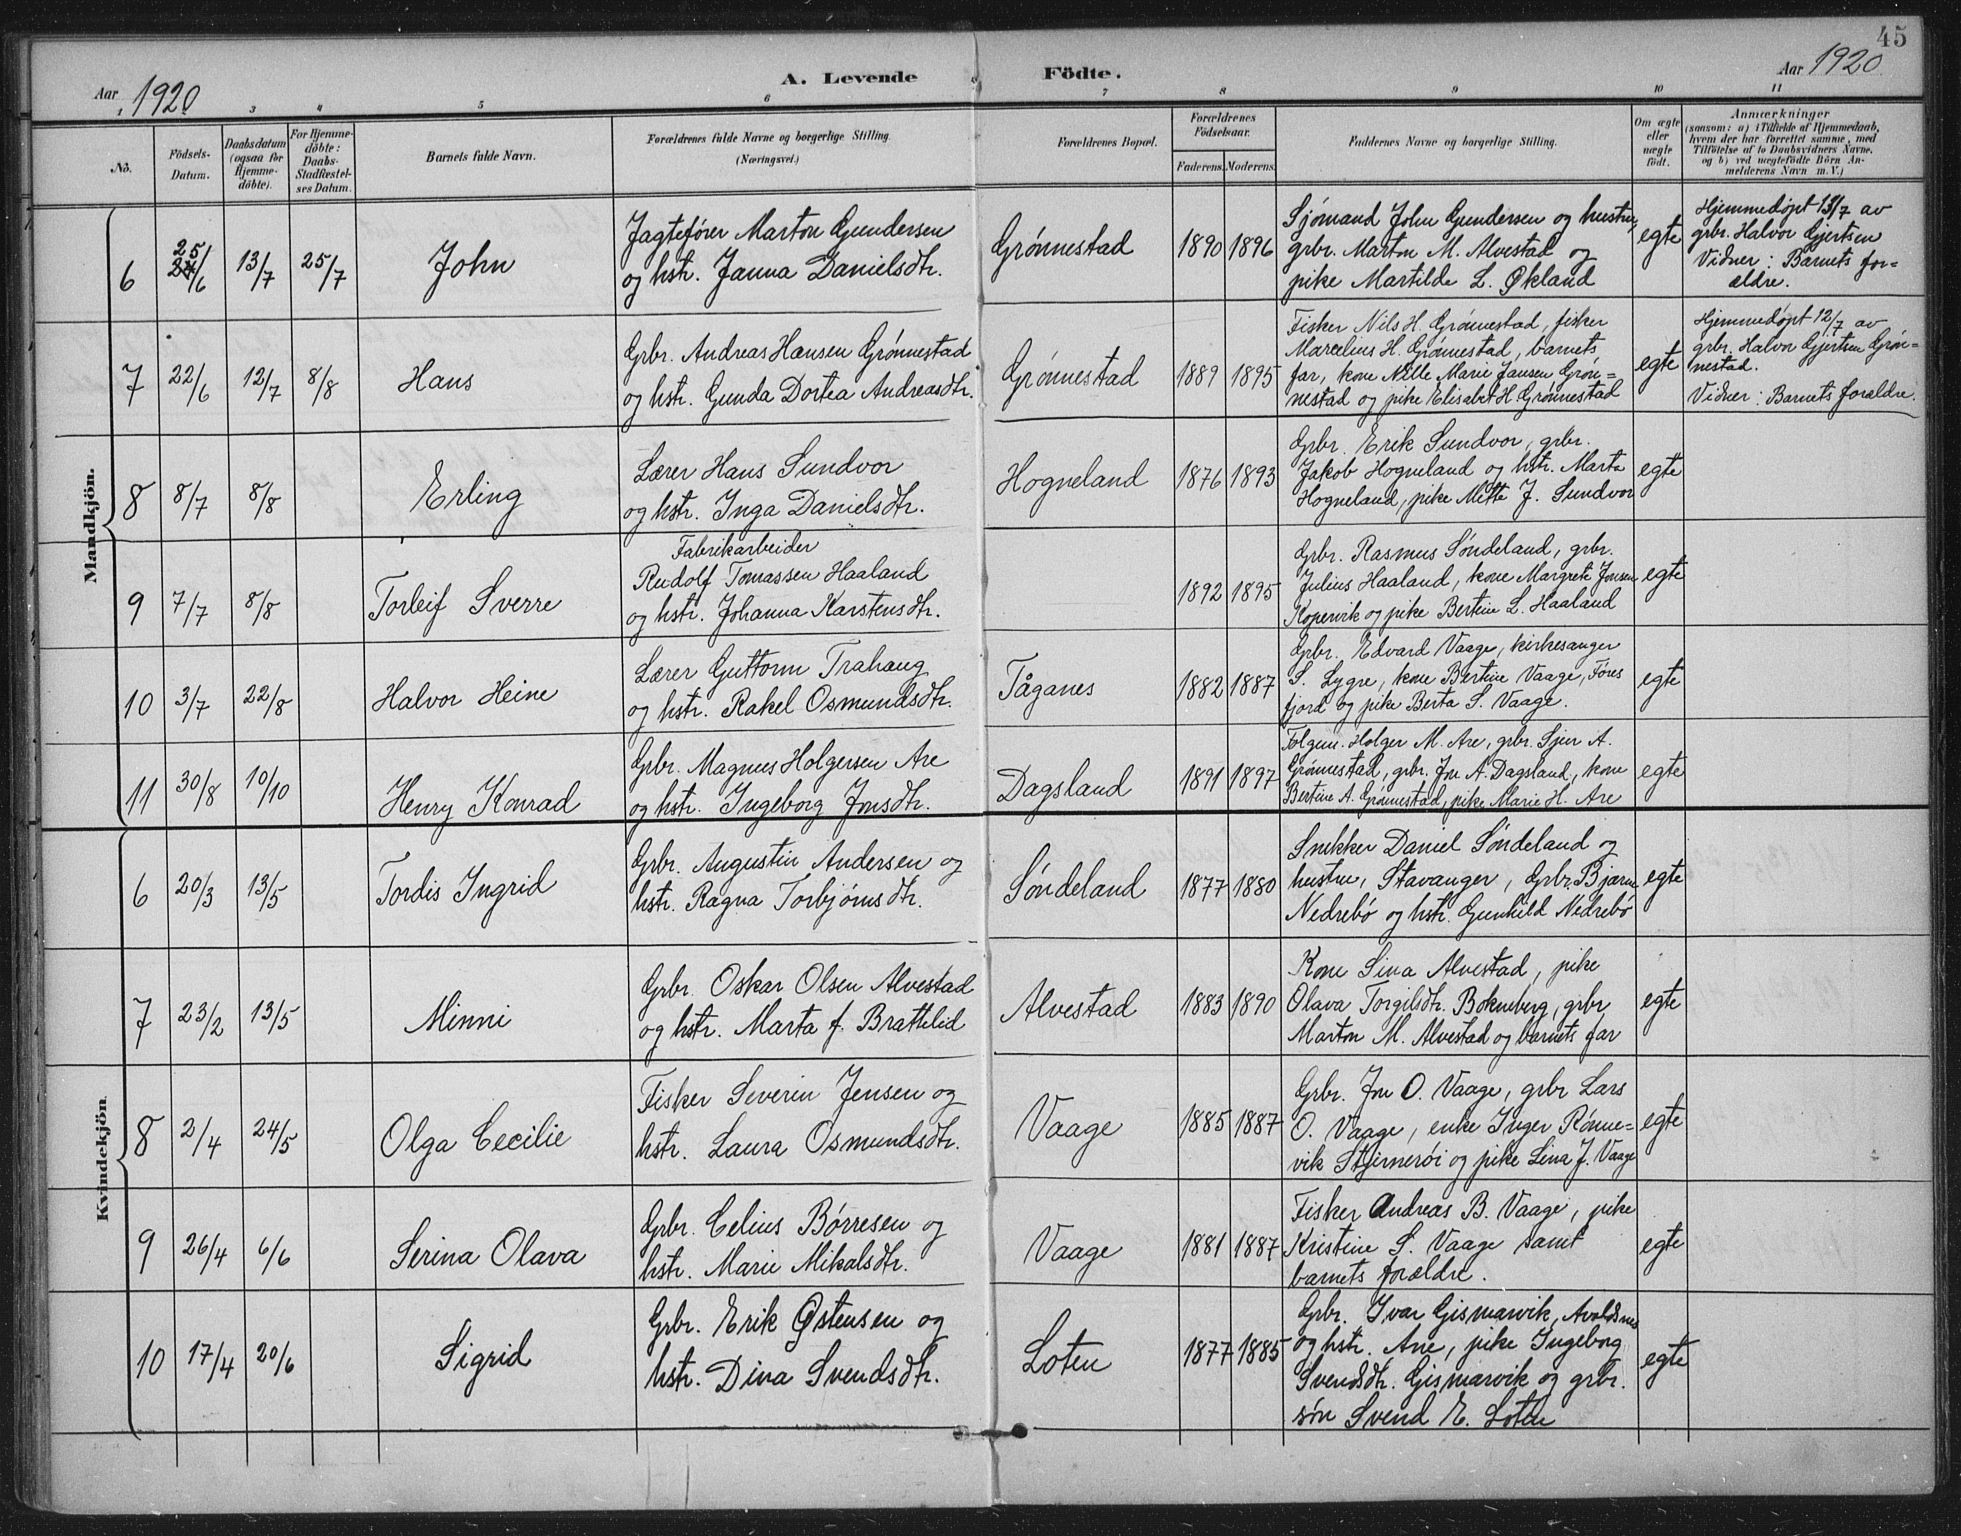 45
Aar 1920
A. Levende Födte.
Aar 1920
3 4 5 6 7 8 9 10 11
No.
Födsels-
Datum.
Daabsdatum
(ogsaa for
Hjemme-
döbte).
For Hjemme-
döbte:
Daabs-
Stadfæstel-
ses Datum.
Barnets fulde Navn.
Forældrenes fulde Navne og borgerlige Stilling.
(Næringsvei.)
Forældrenes Bopæl.
Forældrenes
Födselsaar.
Faderens. Moderens.
Faddernes Navne og borgerlige Stilling.
Om ægte
eller
uægte
födt.
Anmærkninger
(saasom: a) i Tilfælde af Hjemmedaab,
hvem der har forrettet samme, med
Tilföielse af to Daabsvidners Navne,
og b) ved uægtefödte Börn An-
melderens Navn m. V.)
Mandkjön.
6
25/6
13/7
25/7
John
Jagtefører Marton Gundersen
og hstr. Janna Danielsdtr.
Grønnestad
1890 1896
Sjømand John Gundersen og hustru,
grbr. Marton M. Alvestad og
pike Martilde L. Økland
egte
Hjemmedøpt 13/7 av
grbr. Halvor Gjertsen
Vidner: Barnets for=
ældre.
7
22/6
12/7
8/8
Hans
Grbr. Andreas Hansen Grønnestad
og hstr. Gunda Dortea Andreasdtr.
Grønnestad
1889 1895
Fisker Nils H. Grønnestad, fisker
Marcelius H. Grønnestad, barnets
far, kone Nille Marie Jansen Grøn=
nestad og pike Elisabet H Grønnestad
egte
Hjemmedøpt 12/7 av
grbr. Halvor Gjertsen Grøn=
nestad.
Vidner: Barnets forældre.
8
8/7
8/8
Erling
Lærer Hans Sundvor
og hstr. Inga Danielsdtr.
Hogneland
1876 1893
Grbr. Erik Sundvor, grbr.
Jakob Hogneland og hstr. Marta
Hogneland, pike Mette J. Sundvor
egte
9
7/7
8/8
Torleif Sverre
Fabrikarbeider
Rudolf Tomassen Haaland
og hstr. Johanna Karstensdtr.
1892 1895
Grbr. Rasmus Søndeland, grbr.
Julius Haaland, kone Margrete Jonsen
Kopervik og pike Bertine L. Haaland
egte
10
3/7
22/8
Halvor Heine
Lærer Guttorm Trahaug
og hstr. Rakel Osmundsdtr.
Tåganes
1882 1887
Grbr. Edvard Vaage, kirkesanger
S. Lygre, kone Bertine Vaage, Føres
fjord og pike Berta S. Vaage.
egte
11
30/8
10/10
Henry Konrad
Grbr. Magnus Holgersen Are
og hstr. Ingeborg Jonsdtr.
Dagsland
1891 1897
Folgem. Holger M. Are, grbr. Sjur A.
Grønnestad, grbr. Jon A. Dagsland, kone
Bertine A. Grønnestad, pike Marie H. Are
egte
Kvindekjön
6
20/3
13/5
Tordis Ingrid
Grbr. Augustin Andersen og
hstr. Ragna Torbjørnsdtr.
Søndeland
1877 1880
Snekker Daniel Søndeland og
hustru, Stavanger, Grbr. Bjarne
Nedrebø og hstr. Gunhild Nedrebø
egte
7
23/2
13/5
Minni
Grbr. Oskar Olsen Alvestad
og hstr. Marta f. Brattelid
Alvestad
1883 1890
Kone Sina Alvestad, pike
Olava Torgilsdtr. Bokneberg, grbr
Marton M. Alvestad og barnets far
egte
8
2/4
24/5
Olga Cecilie
Fisker Severin Jensen og
hstr. Laura Osmundsdtr.
Vaage
1885 1887
Grbr. Jon O. Vaage, grbr Lars
O. Vaage, enke Inger Rønne=
vik Stjernerøi og pike Lina J. Vaage
egte
9
26/4
6/6
Serina Olava
Grbr. Celius Børresen og
hstr. Marie Mikalsdtr.
Vaage
1881 1887
Fisker Andreas B. Vaage, pike
Kristine S. Vaage samt
barnets forældre.
egte
10
17/4
20/6
Sigrid
Grbr. Erik Østensen og
hstr. Dina Svendsdtr.
Loten
1877 1885
Grbr. Ivar Gismarvik, Avaldsnes
og hstr. Ane, pike Ingeborg
Svendsdtr. Gismarvik og grbr.
søn Svend E. Loten
egte